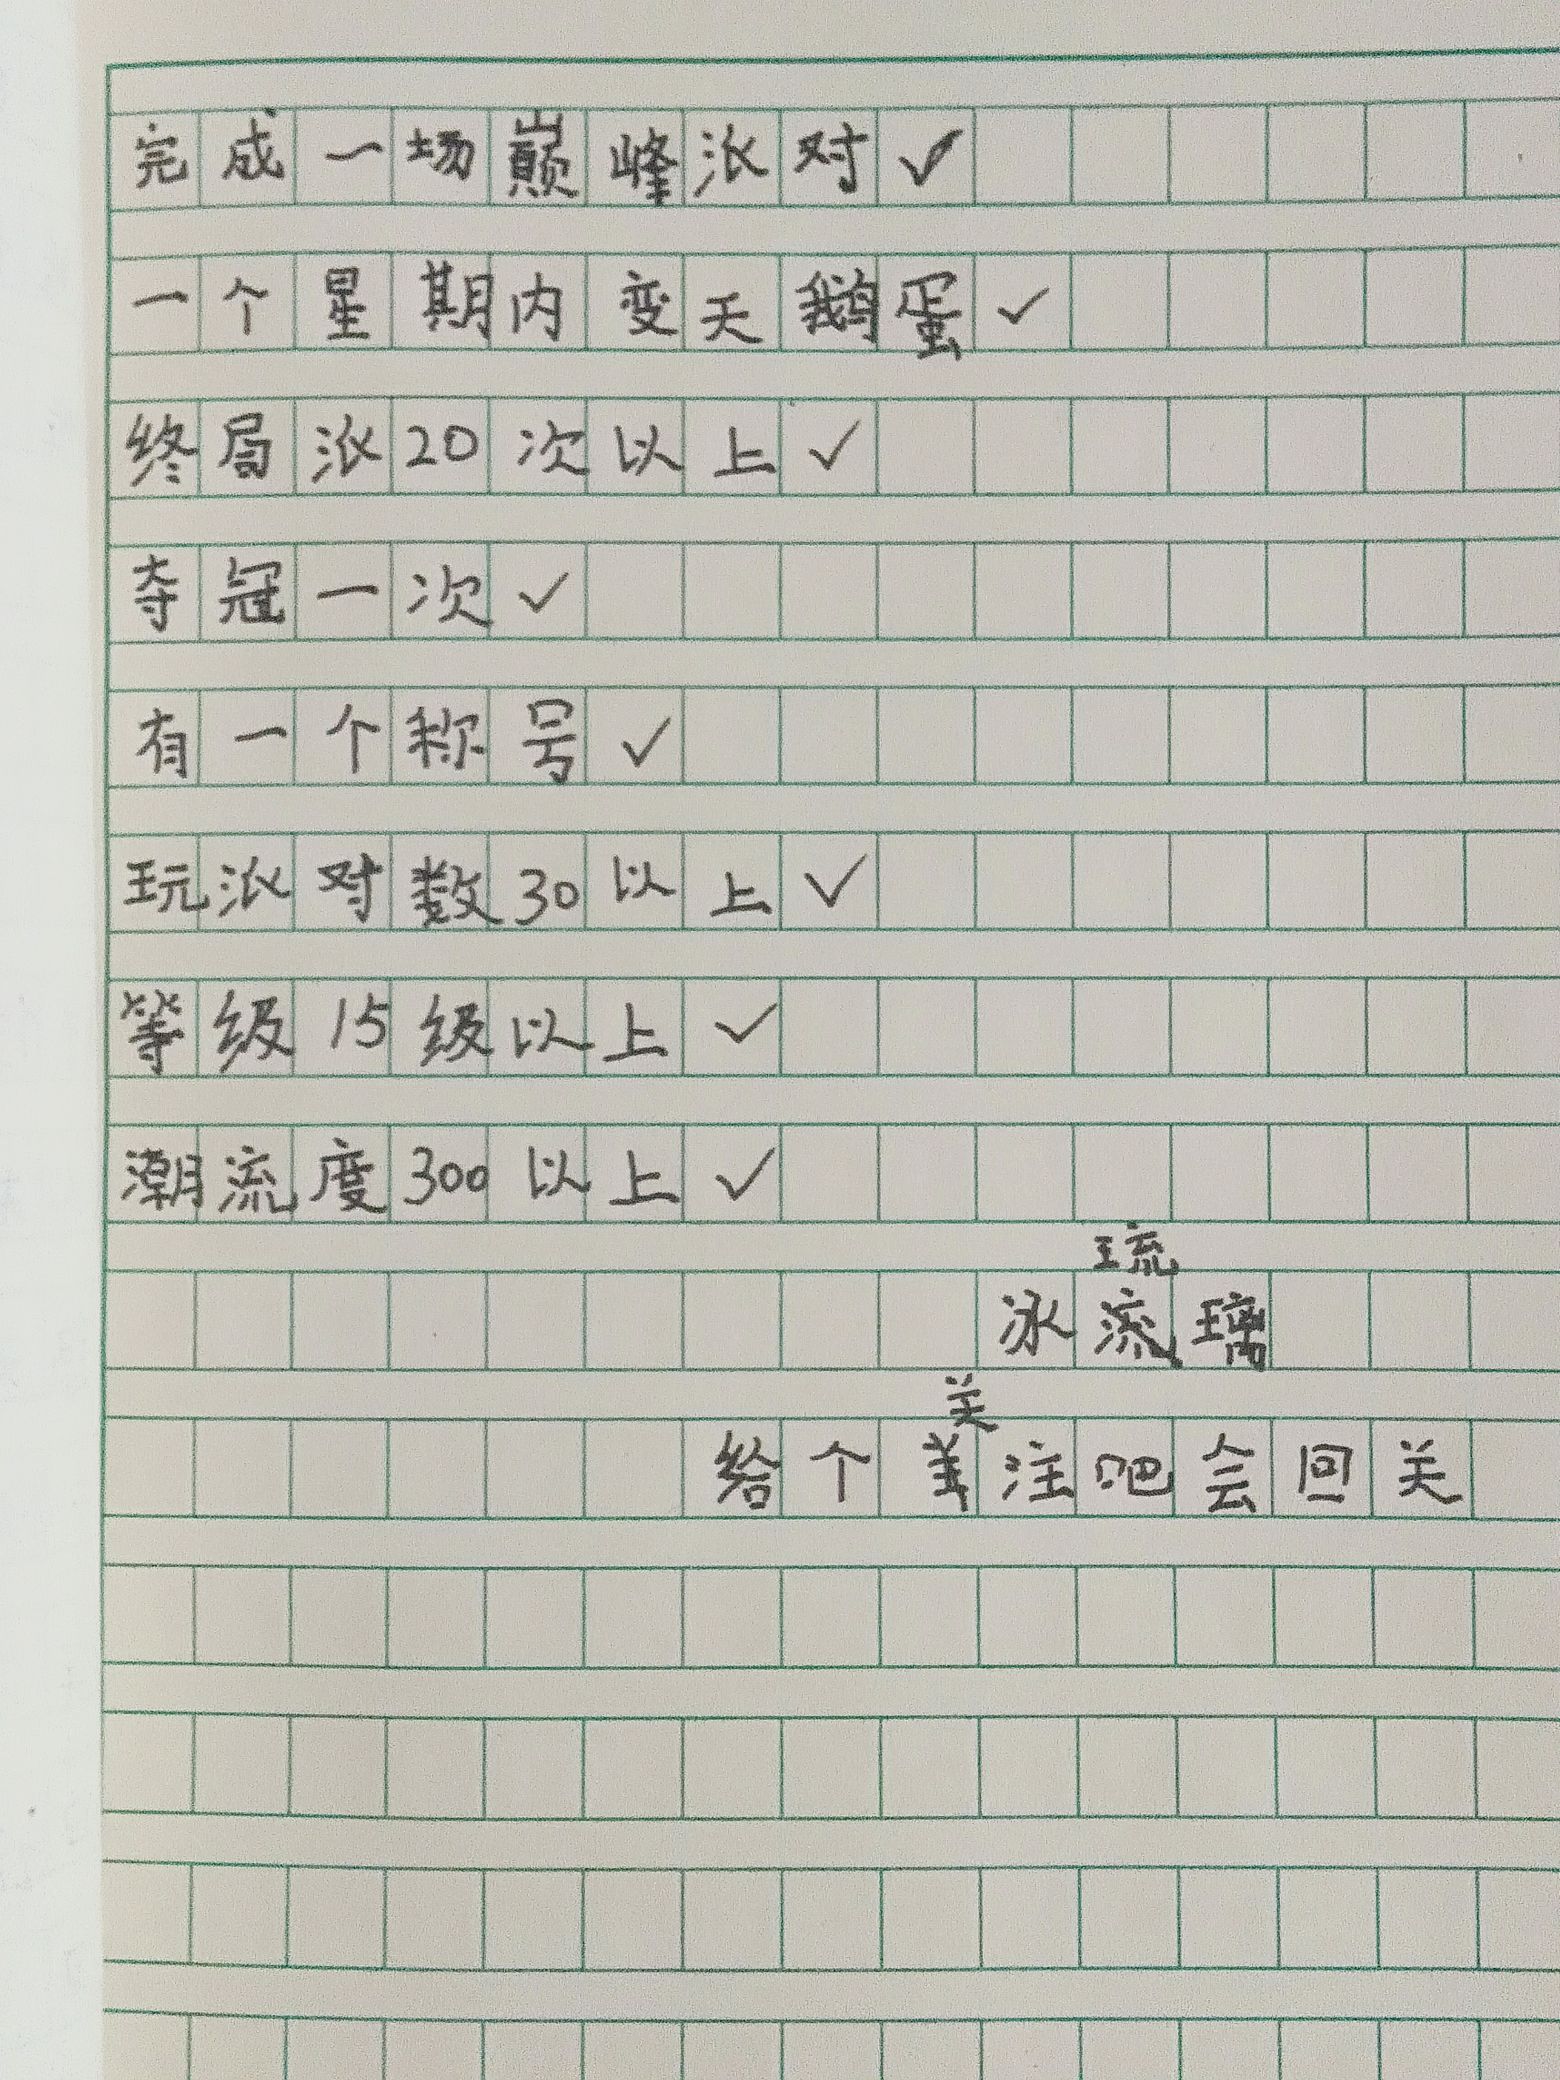 完成一场巅峰派对✓
一个星期内变天鹅蛋✓
终局派20次以上✓
夺冠一次✓
有一个称号✓
玩派对数30以上✓
等级15级以上✓
潮流度300以上✓
琉
冰流璃
关
给个注吧会回关